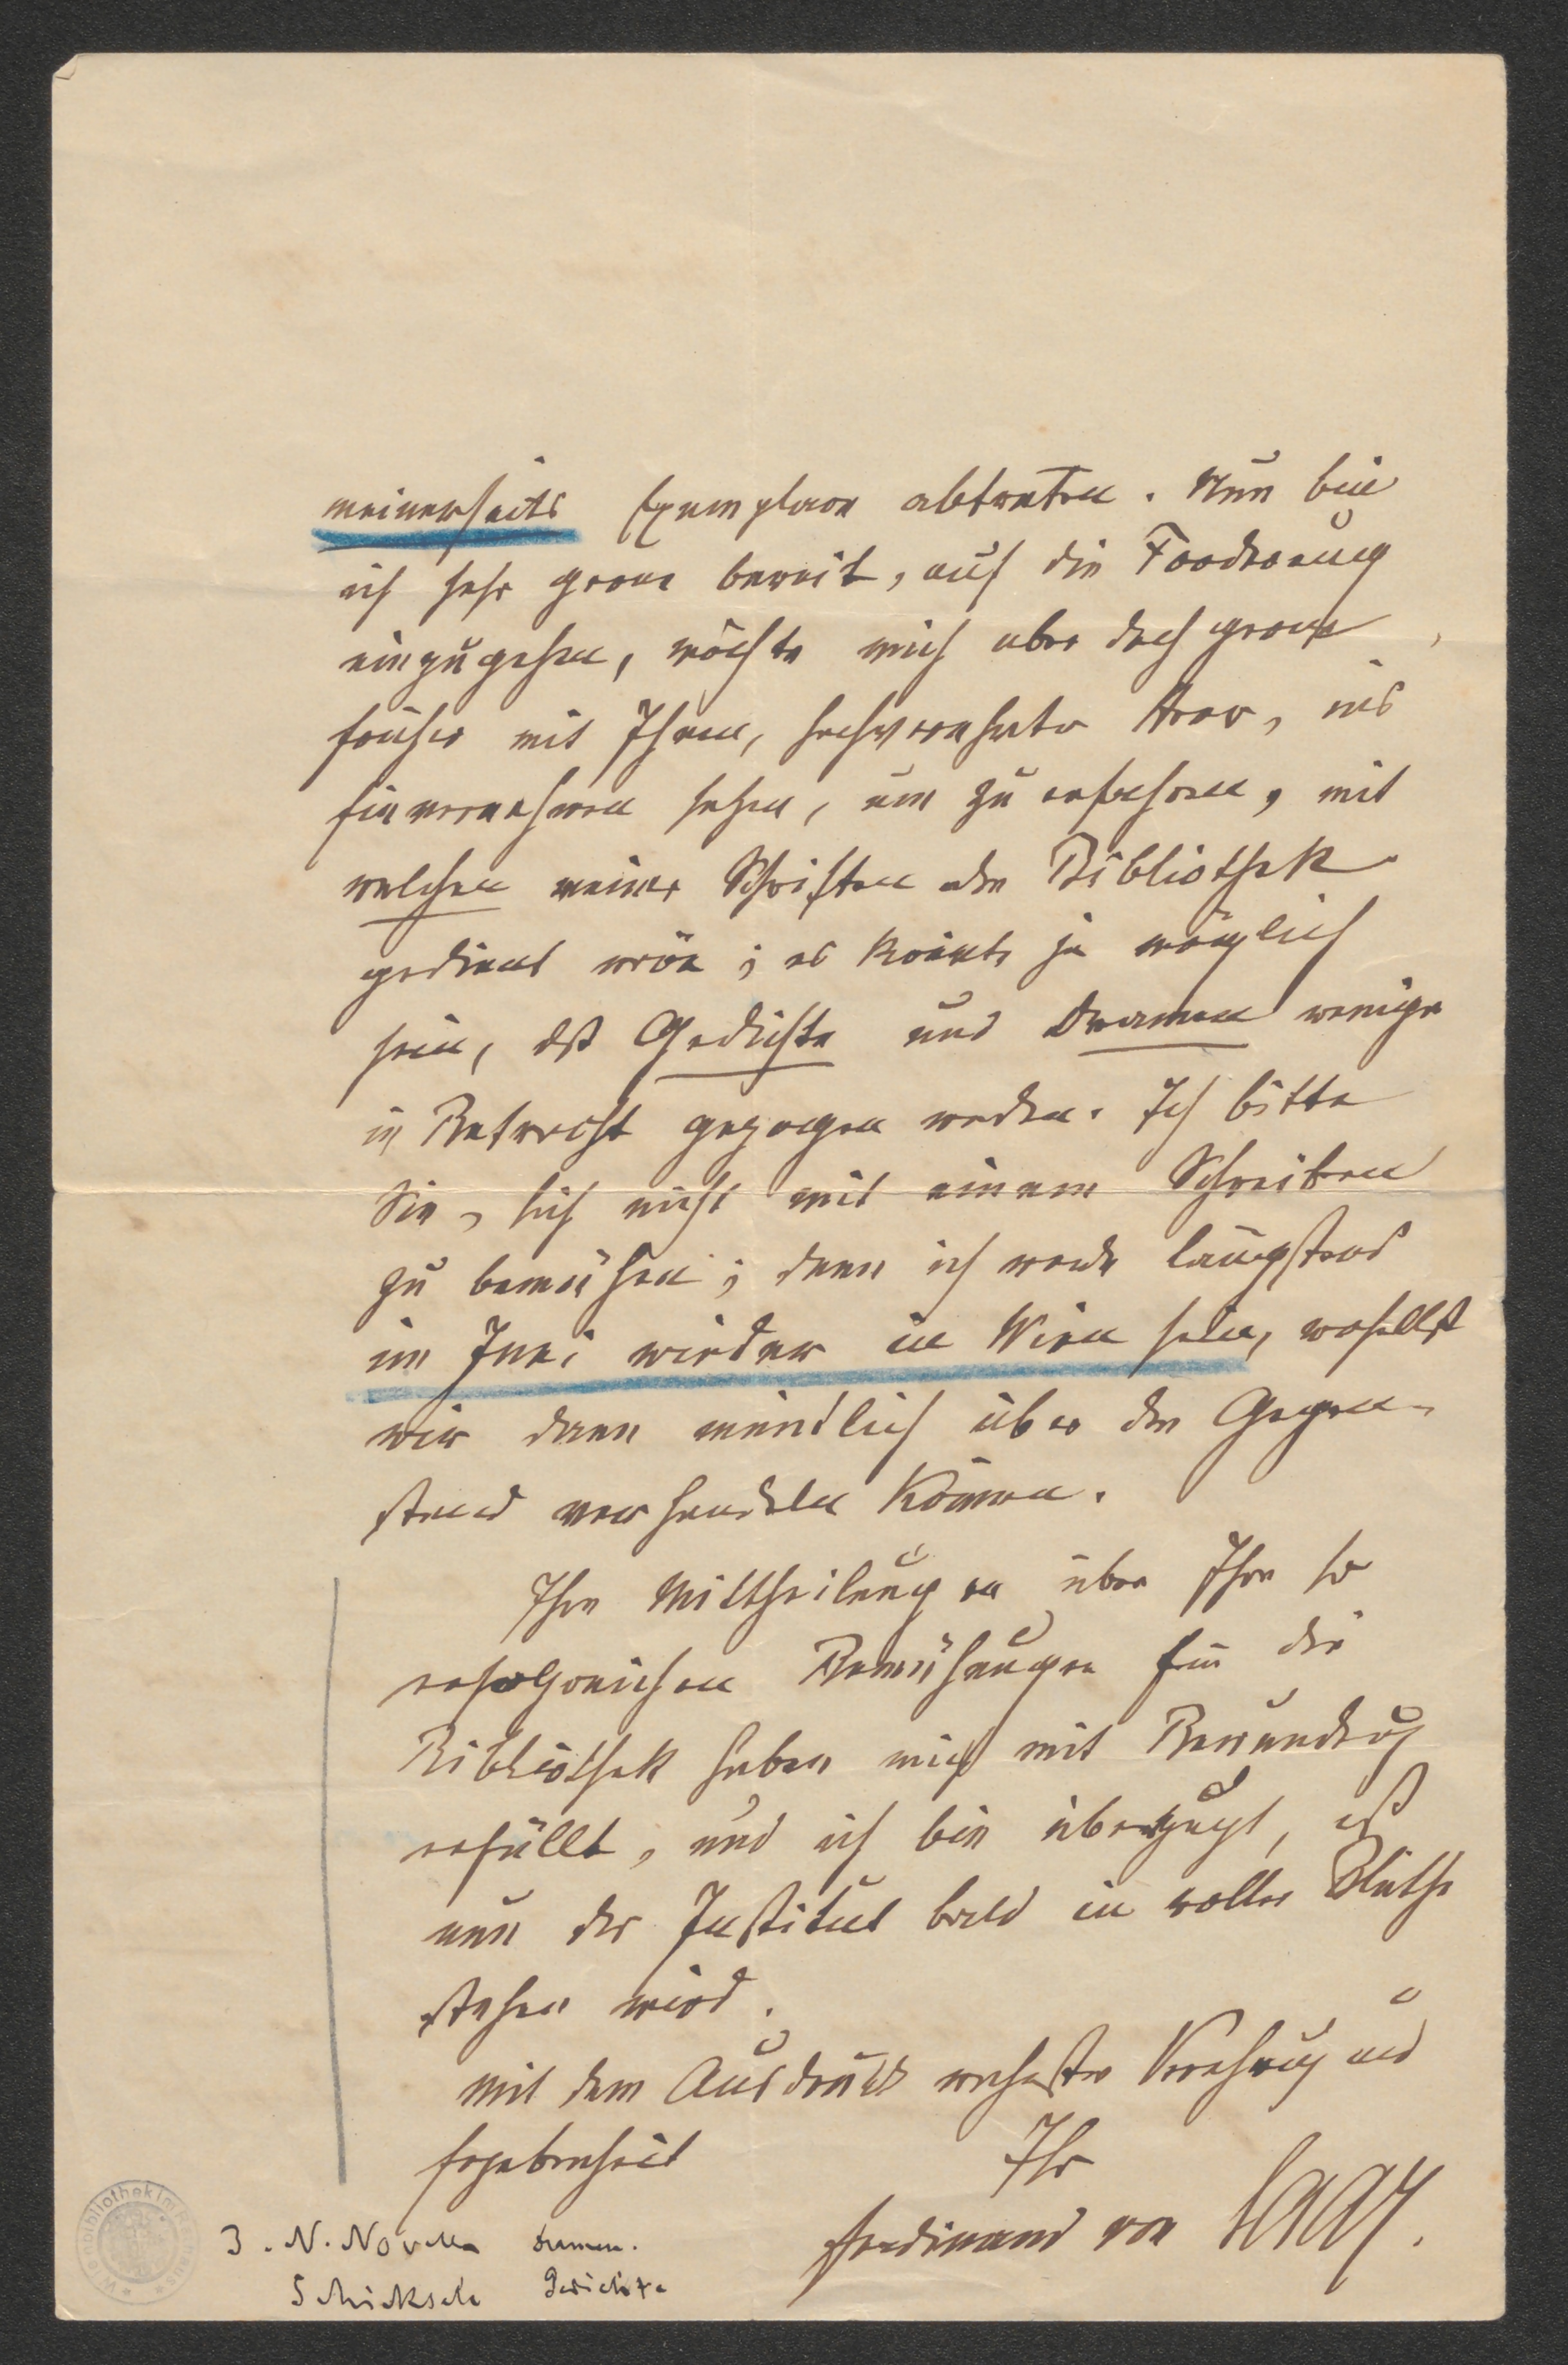 meinerseits Exemplare abtreten. Nun bin
ich sehr gerne bereit, auf die Forderung
einzugehen, möchte mich aber doch gerne
früher mit Ihnen, hochverehrter Herr, ins
Einvernehmen setzen, um zu erfahren, mit
welchen meiner Schriften der Bibliothek
gedient wäre; es könnte ja möglich
sein, dß Gedichte und Dramen weniger
in Betracht gezogen werden. Ich bitte
Sie, sich nicht mit einem Schreiben
zu bemühen; denn ich werde längstens
im Juni wieder in Wien sein, woselbst
wir dann mündlich über den Gegen-
stand verhandeln können.
Ihre Mittheilungen über Ihre so
erfolgreichen Bemühungen für die
Bibliothek haben mich mit Bewunderung
erfüllt, und ich bin überzeugt, dß
nun das Institut bald in voller Blüthe
stehen wird.
Mit dem Ausdruck wahrster Verehrung und
Ergebenheit
Ihr
Ferdinand von Saar.
3. N. Novellen Dramen.
Schicksale Gedichte
Wienbibliothek im Rathaus